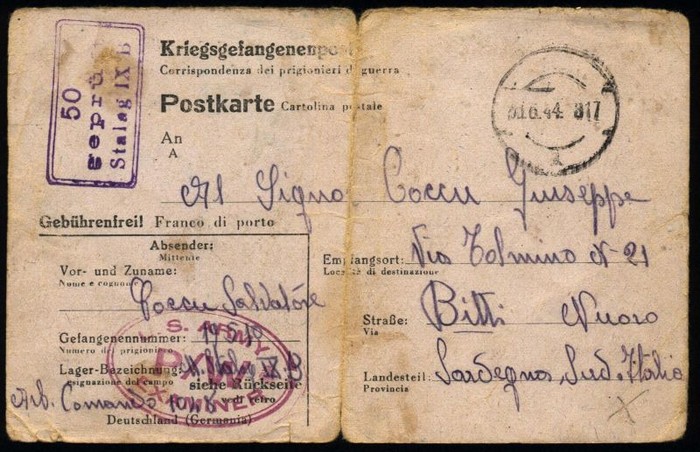 50
geprü
Stalag IX B
Kriegsgefangenenpost
Corrispondenza dei prigionieri di guerra
Postkarte Cartolina postale
.6.44. 817
An
A
Al Signo Coccu Giuseppe
Gebührenfrei! Franco di porto
Absender:
Mittente
Vor- und Zuname:
Nome e cognome
Coccu Salvatore
Gefangenennummer:
Numero del prigioniero
Lager-Bezeichnung: M. Stalag IX B
siehe Rückseite
Arb. Comando 1048
Deutschland (Germania)
U. S. ARMY
EXAMINER
Empfangsort: Via Tolmino N-21
Località di destinazione
Straße: Bitti Nuoro
Via
Landesteil: Sardegna Sud. Italia
Provincia
X